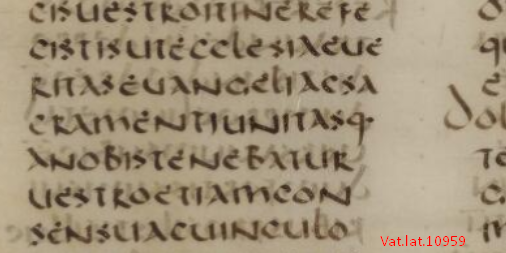 CISUESTROITINEREFE
CISTISUTECCLESIAEUE
RITASEUANGELIACSA
CRAMENTIUNITASQ·
ANOBISTENEBATUR
UESTROETIAMCON
SENSUACUINCULO
Vat.lat.10959